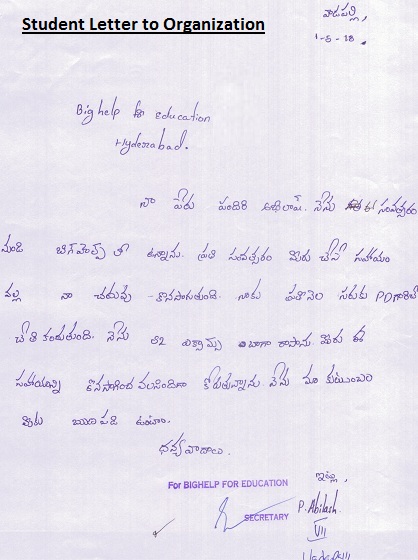 Student Letter to Organization
వాడపల్లి,
1-5-18.
Big help for education
Hyderabad.
నా పేరు పందిరి అభిలాష్. నేను సంవత్సరం
నుండి బిగ్‌హెల్ప్ లో ఉన్నాను. ప్రతి సంవత్సరం మీరు చేసే సహాయం
వల్ల నా చదువు కొనసాగుతుంది. నాకు ప్రతినెల సరుకు PD గారిచే
చేతి కందుతుంది. నేను ఎగ్జామ్స్ బాగా రాసాను. మీరు ఈ
సహాయాన్ని కొనసాగించ వలసిందిగా కోరుతున్నాను. నేను మా కుటుంబం
మీకు ఋణపడి ఉంటాం.
ధన్యవాదాలు.
ఇట్లు,
For BIGHELP FOR EDUCATION
P. Abilash.
SECRETARY
VII